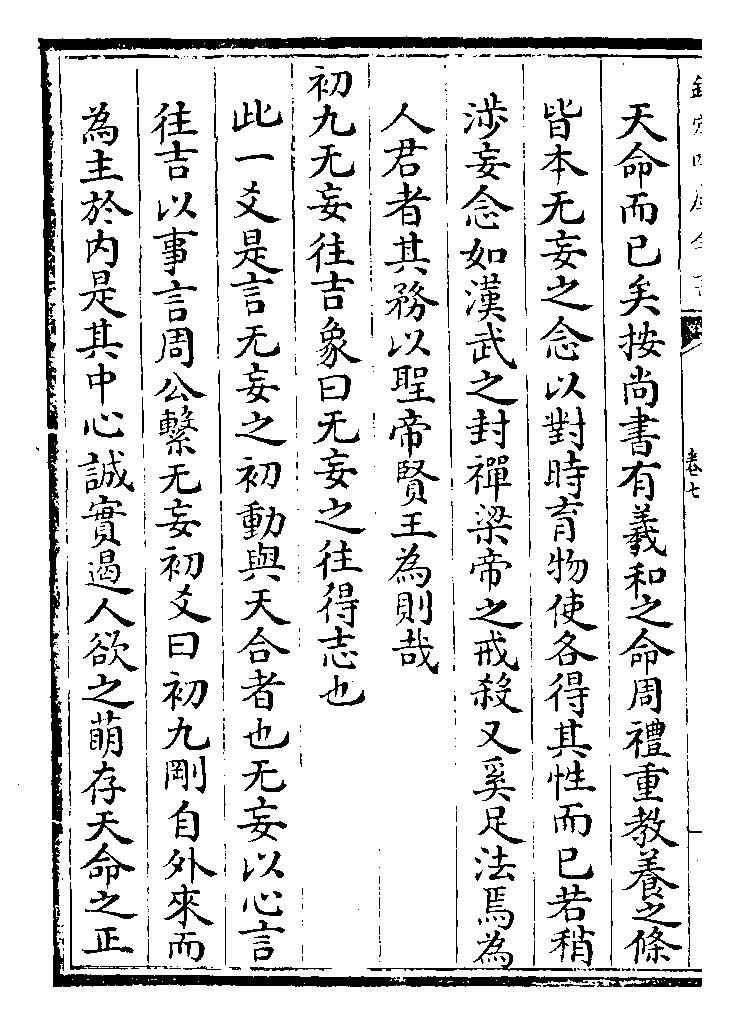 天命而已矣按尚書有羲和之命周禮重教養之條
皆本无妄之念以對時育物使各得其性而已若稍
涉妄念如漢武之封禪梁帝之戒殺又奚足法焉為
人君者其務以聖帝賢王為則哉
初九无妄往吉象曰无妄之往得志也
此一爻是言无妄之初動與天合者也无妄以心言
往吉以事言周公繫无妄初爻曰初九剛自外來而
為主於内是其中心誠實遏人欲之萌存天命之正
卷七